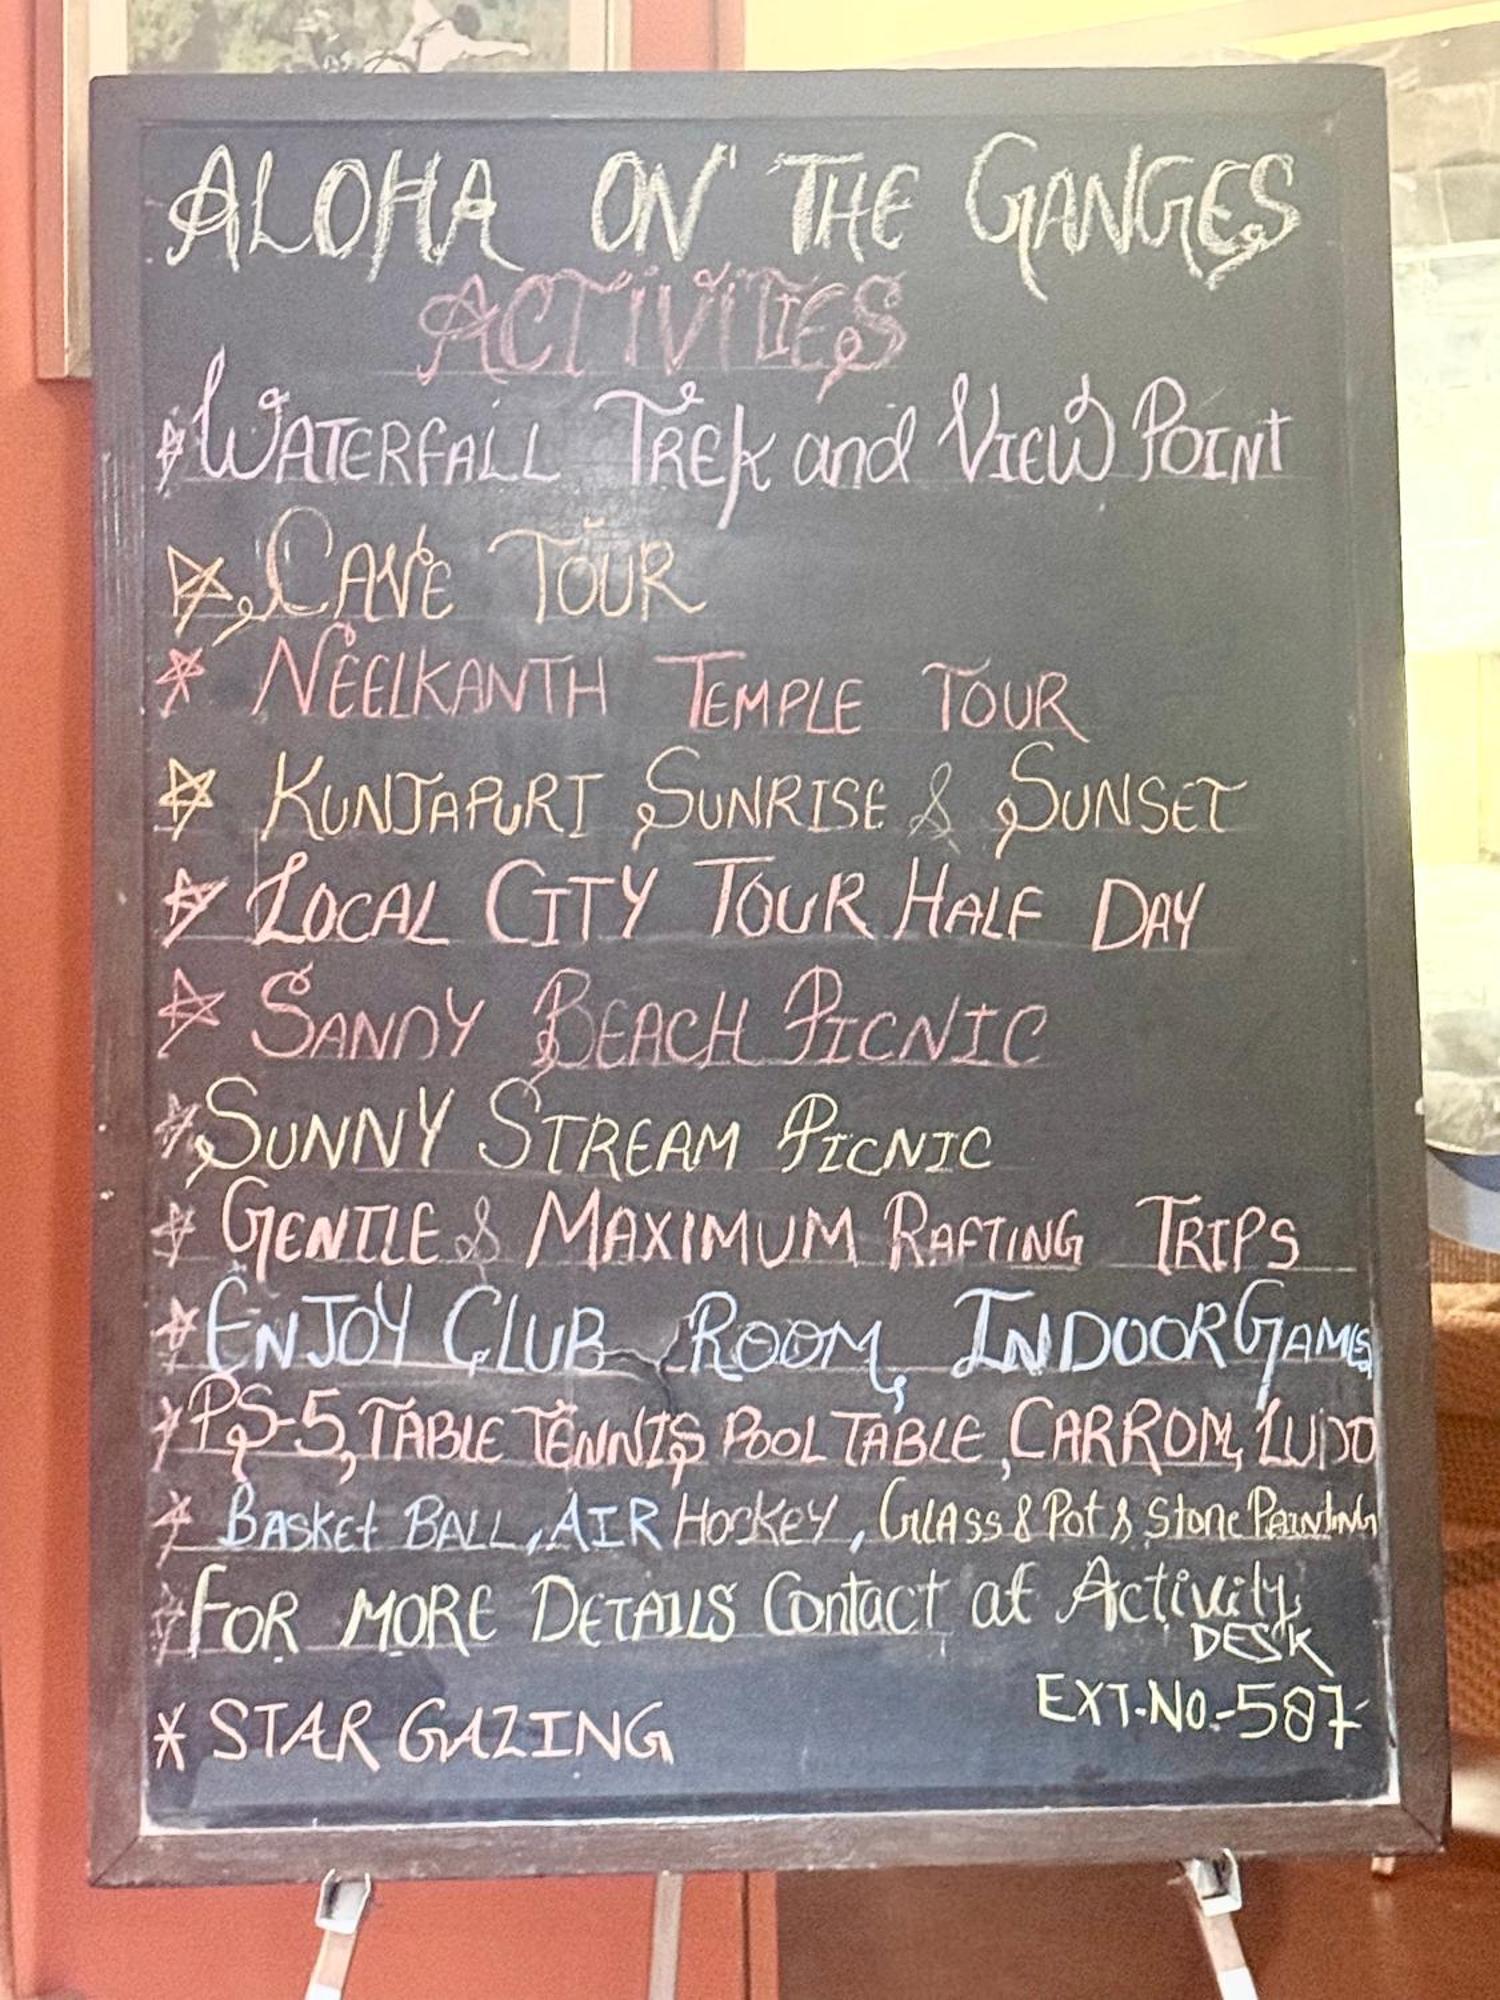 ALOHA ON THE GANGES
ACTIVITIES
WATERFALL TREK and VIEW POINT
CAVE TOUR
NEELKANTH TEMPLE TOUR
KUNJAPURI SUNRISE & SUNSET
LOCAL CITY TOUR HALF DAY
SANDY BEACH PICNIC
SUNNY STREAM PICNIC
GENTLE & MAXIMUM RAFTING TRIPS
ENJOY CLUB ROOM, INDOOR GAMES
PS-5, TABLE TENNIS POOL TABLE, CARROM, LUDO
BASKET BALL, AIR HOCKEY, GLASS & POT & STONE PAINTING
FOR MORE DETAILS Contact at Activity
DESK
EXT.NO.-587
* STAR GAZING